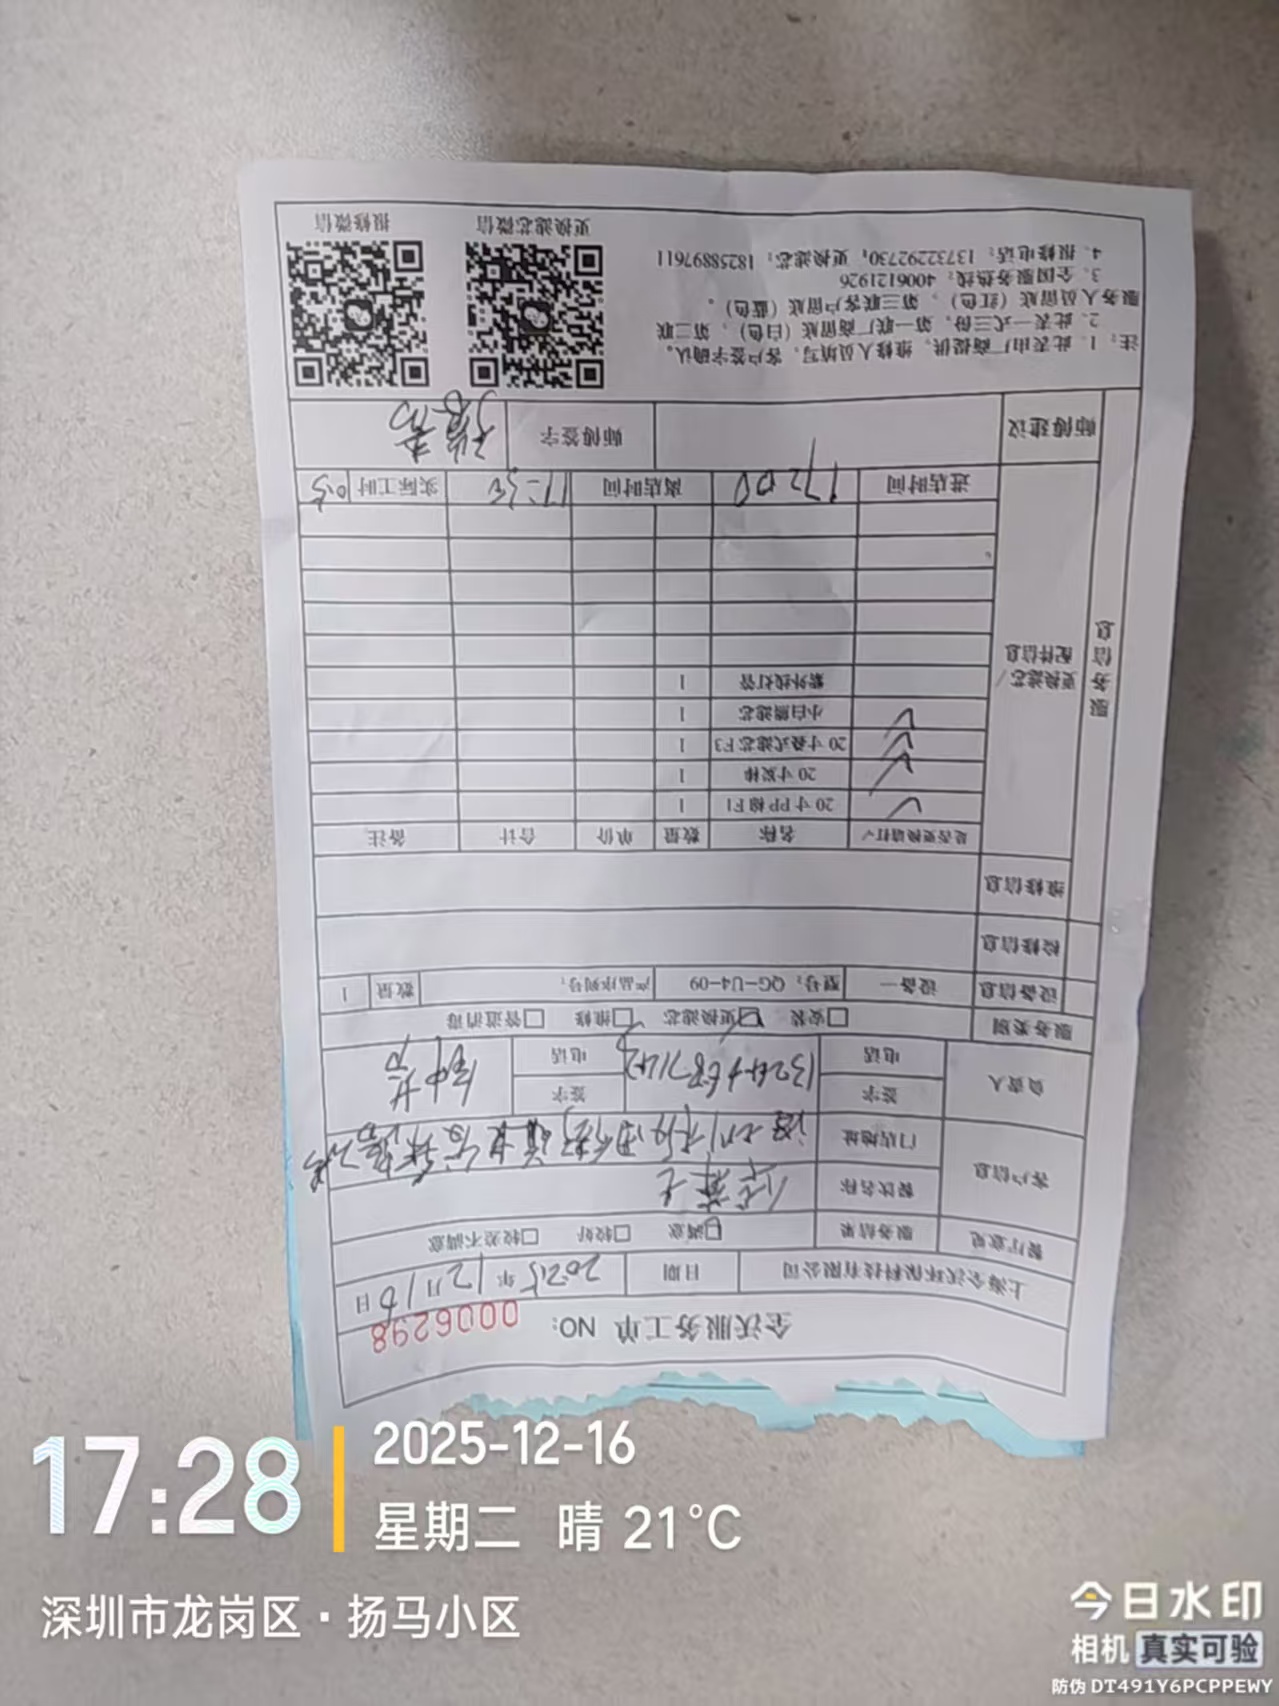 全沃服务工单 NO: 0006298
上海全沃环保科技有限公司 日期 2025年12月16日
餐厅意见 服务结果 □满意 □较好 □较差不满意
客户信息 餐饮名称
门店地址
负责人 签字 签字
电话 电话
服务类别 □安装 ☑更换滤芯 □维修 □管道消毒
设备信息 设备一 型号：QG-U4-09 产品序列号： 数量 1
检修信息
维修信息
服务信息
更换滤芯/配件信息
是否更换请打√ 名称 数量 单价 合计 备注
✓ 20寸PP棉F1 1
✓ 20寸炭棒 1
✓ 20寸叠式滤芯F3 1
✓ 小白熊滤芯 1
紫外线灯管 1
进店时间 17:00 离店时间 实际工时 0.5
师傅建议 师傅签字
注：1、此表由厂商提供，维修人员填写，客户签字确认。
2、此表一式三份，第一联厂商留底（白色），第二联
服务人员留底（红色），第三联客户留底（蓝色）。
3、全国服务热线：4006121926
4、报修电话：13732292730；更换滤芯：18258897611
更换滤芯微信 报修微信
17:28
2025-12-16
星期二 晴 21°C
深圳市龙岗区·扬马小区
今日水印
相机 真实可验
防伪 DT491Y6PCPPEWY